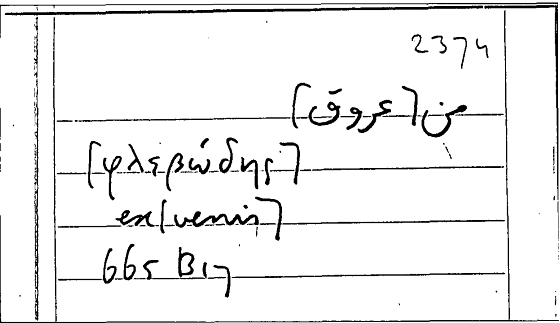 2374
من [عروق]
[φλεβώδης]
ex[venis]
665 B17